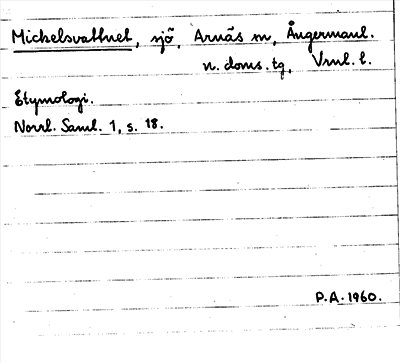 Michelsvattnet, sjö, Arnäs sn, Ångermanl.
n. doms. tg, Vrnl. l.
Etymologi.
Norrl. Saml. 1, s. 18.
P.A. 1960.